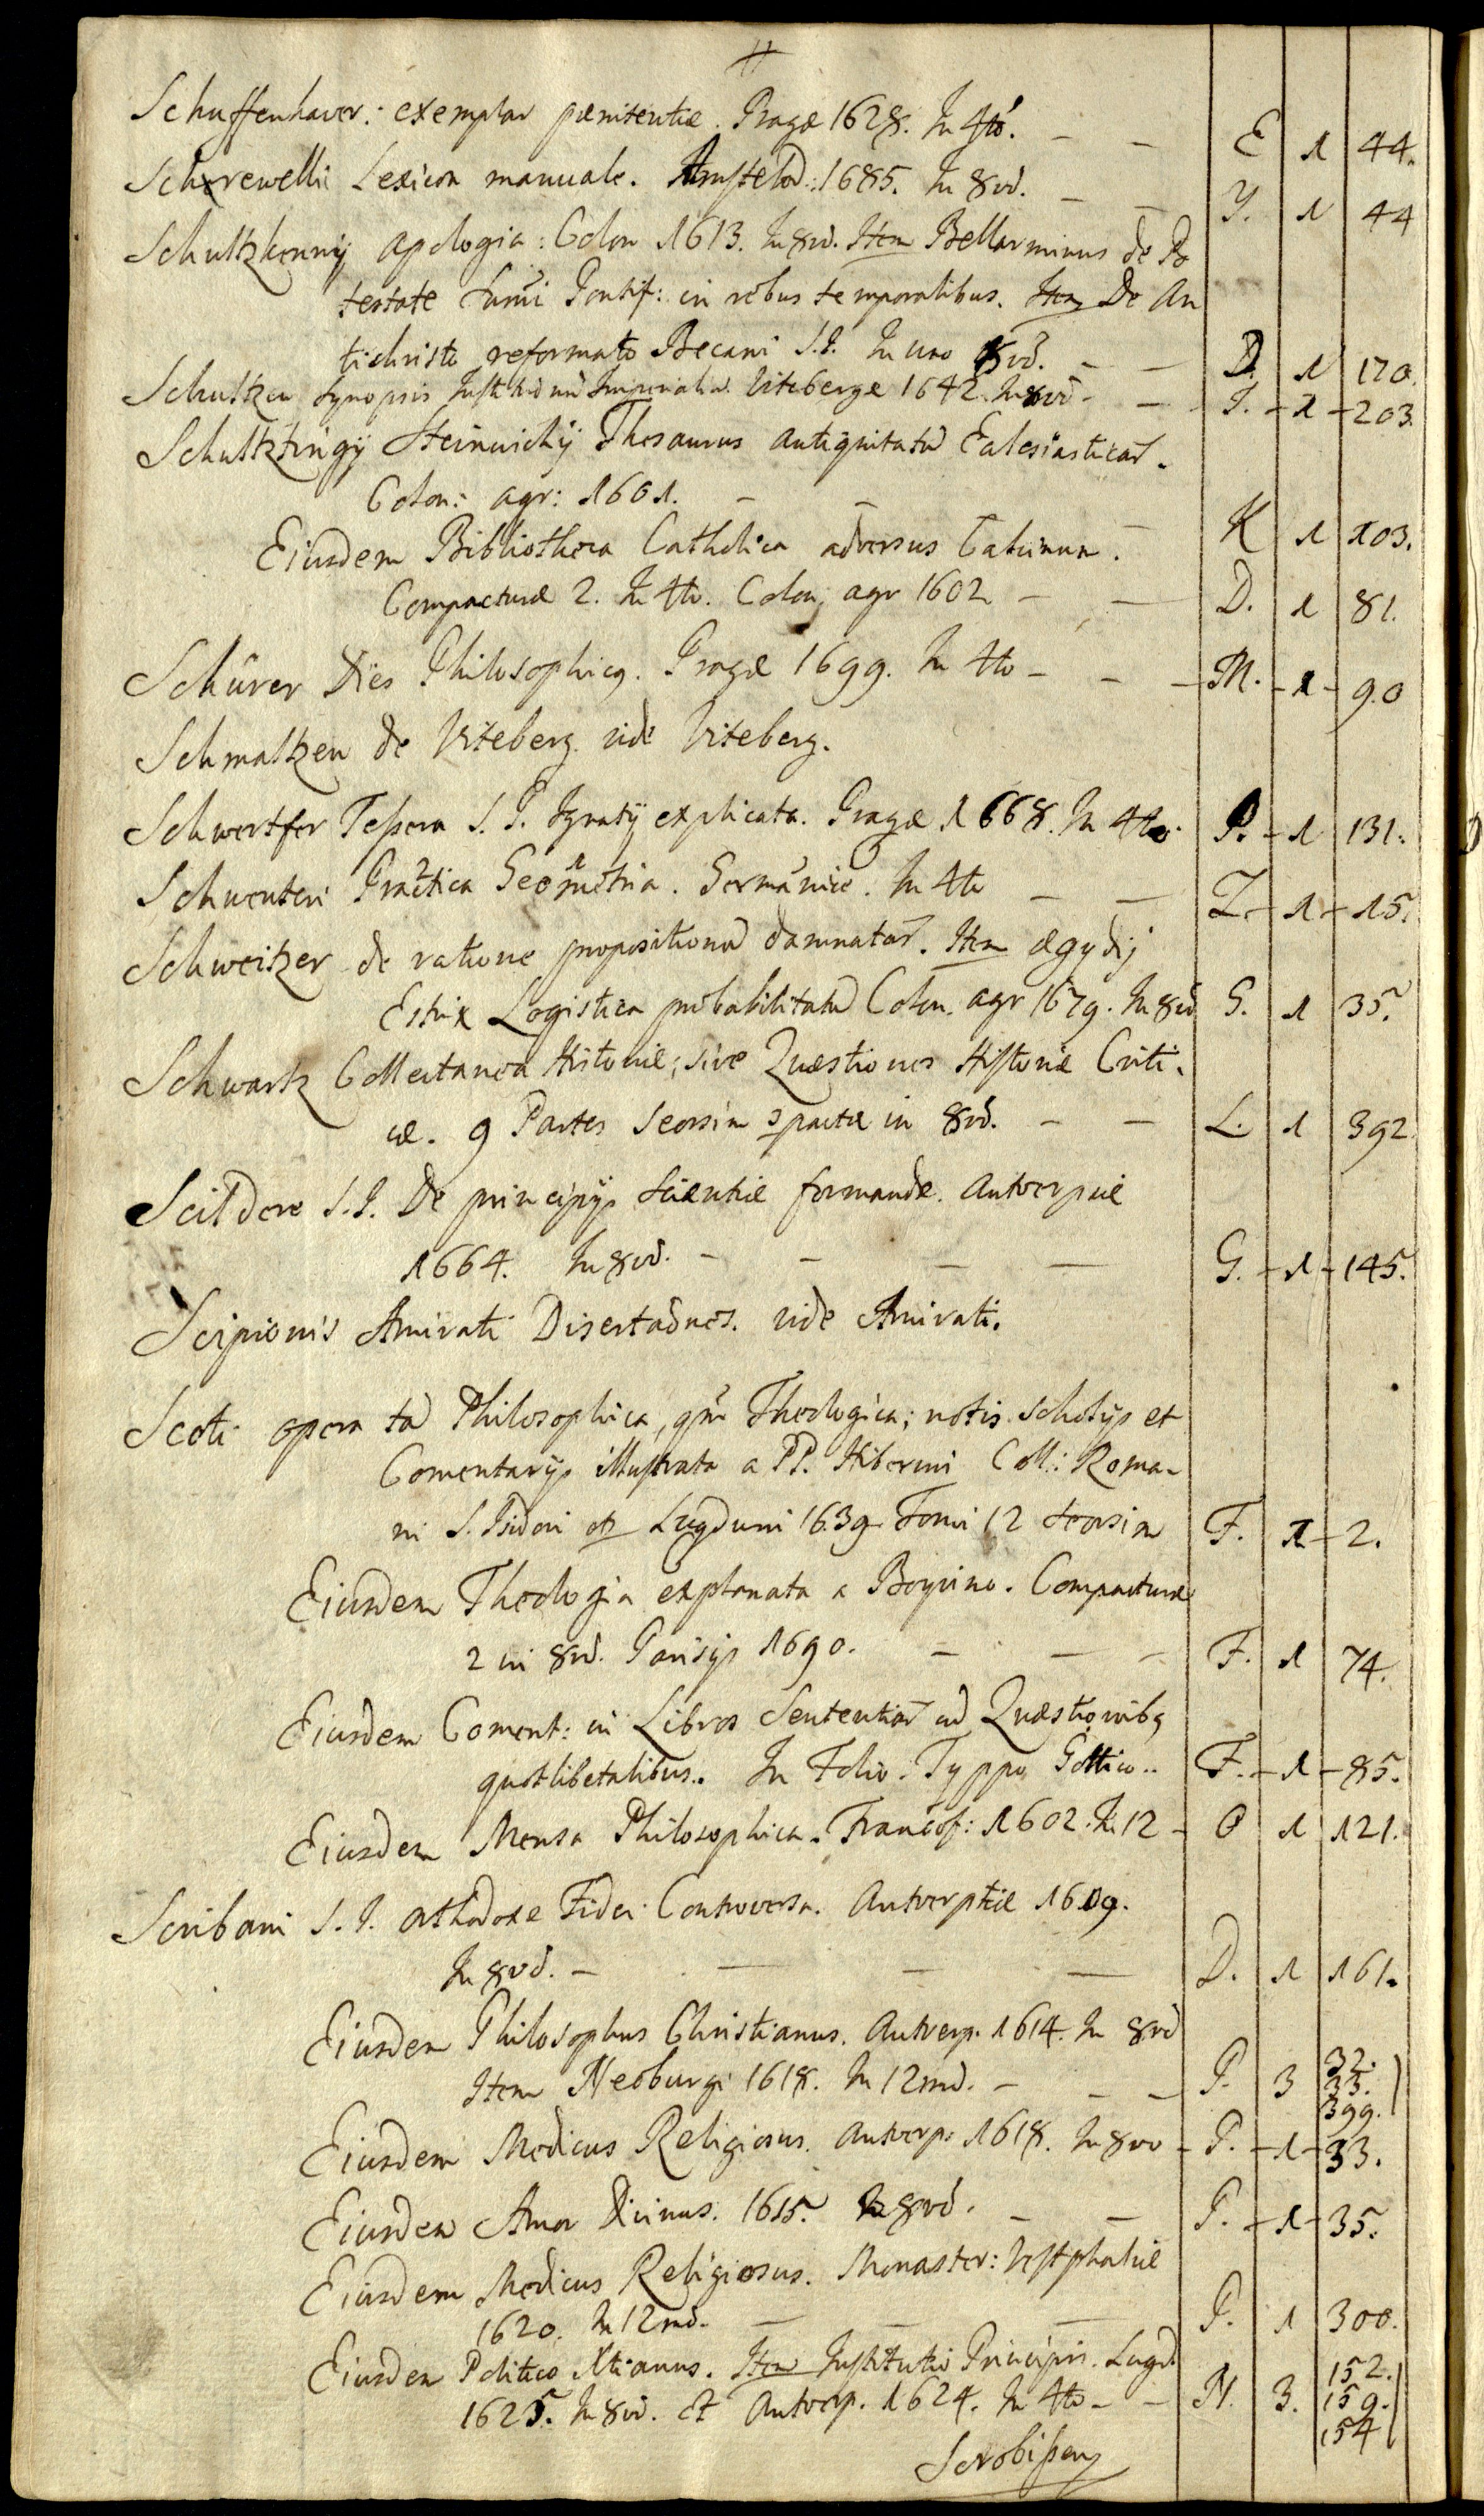 Schuffenhaver: exemplar pænitentiæ. Pragæ 1628. In 4tó. — — E 1 44.
Schrewellii Lexicon manuale. Amstelod: 1685. In 8vô. — — Y. 1 44
Schultzkenný apologia: Colon 1613. In 8vô. Item Bellarminus de Po
testate sum̃i Pontif: in rebus temporalibus. Item De An
tichristo reformato Becani S.I. In uno 8vô. — — D. 1 170.
Schultzen Synopsis Institutionũ Imperialiũ. Vitebergæ 1642. In 8vô — — I. 1 203.
Schultztingý Steinwichý Thesaurus antiquitatũ Eclesiasticar̃.
Colon: agr: 1601. — — — K 1 103.
Eiusdem Bibliotheca Catholica adversus Calvinum.
Compacturæ 2. In 4to. Colon: agr 1602 — — D. 1 81.
Schûrer Dies Philosophicq. Pragæ 1699. In 4to — — — M. 1 90
Schmaltzen de Viteberg vide Viteberg.
Schwertfer Teßera S. P. Ignatý explicata. Pragæ 1668. In 4to. P. 1 131.
Schwenteri Practica Geometria. Germanicè. In 4to — — Z. 1 15.
Schweitzer de ratione propositionũ damnatar̃. Item ægydij
Estrix Logistica probabilitatũ Colon. agr 1679. In 8vô G. 1 35.
Schwartz Collectanea Historiæ; sive Quæstiones Historiæ Criti-
cæ. 9 Partes Seorsim 9pactæ in 8vô. — — L. 1 392.
Scildere S.I. De principijs scientiæ formandæ. Antverpiæ
1664. In 8vô. — — — — G. 1 145.
Scipionis Amirati Disertaõnes. vide Amirati.
Scoti opera tã Philosophica, qm̃ Theologica; notis scholijs et
Comentarijs illustrata a PP. Hiberni Coll: Roma-
ni S. Isidori etc Lugduni 1639 Tomi 12 seorsim F. 1 2.
Eiusdem Theologia explanata a Boyvino. Compacturæ
2 in 8vô. Parisijs 1690. — — — F. 1 74.
Eiusdem Coment: in Libros Sententiar̃ cũ Quæstionibq
quotlibetalibus. In Folio. Typpo Gottico.. F. 1 85.
Eiusdem Mensa Philosophica. Francof: 1602. In 12 — O 1 121.
Scribani S.I. orthodoxæ Fidei Controversa. Antverpiæ 1609.
In 8vô. — — — — D. 1 161.
Eiusdem Philosophus Christianus. Antverp. 1614. In 8vô
Item Neoburgi 1618. In 12mô. — — — P. 3 32. 33. 399.
Eiusdem Medicus Religiosus. Antverp: 1618. In 8vo — P. 1 33.
Eiusdem Amor Divinus. 1615. In 8vô. — — P. 1 35.
Eiusdem Medicus Religiosus. Monaster: Vestphaliæ
1620. In 12mô. — — — P. 1 300.
Eiusdem Politico Xtianus. Item Institutio Principis. Lugd
1625. In 8vô. et Antverp. 1624. In 4to — — N. 3. 152. 159. 154
Scrobißeny